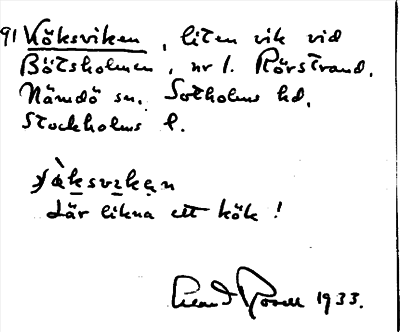 91 Köksviken, liten vik vid
Bötsholmen, nr 1. Rörstrand,
Nämdö sn. Sotholms hd.
Stockholms l.
där likna ett kök!
1933.